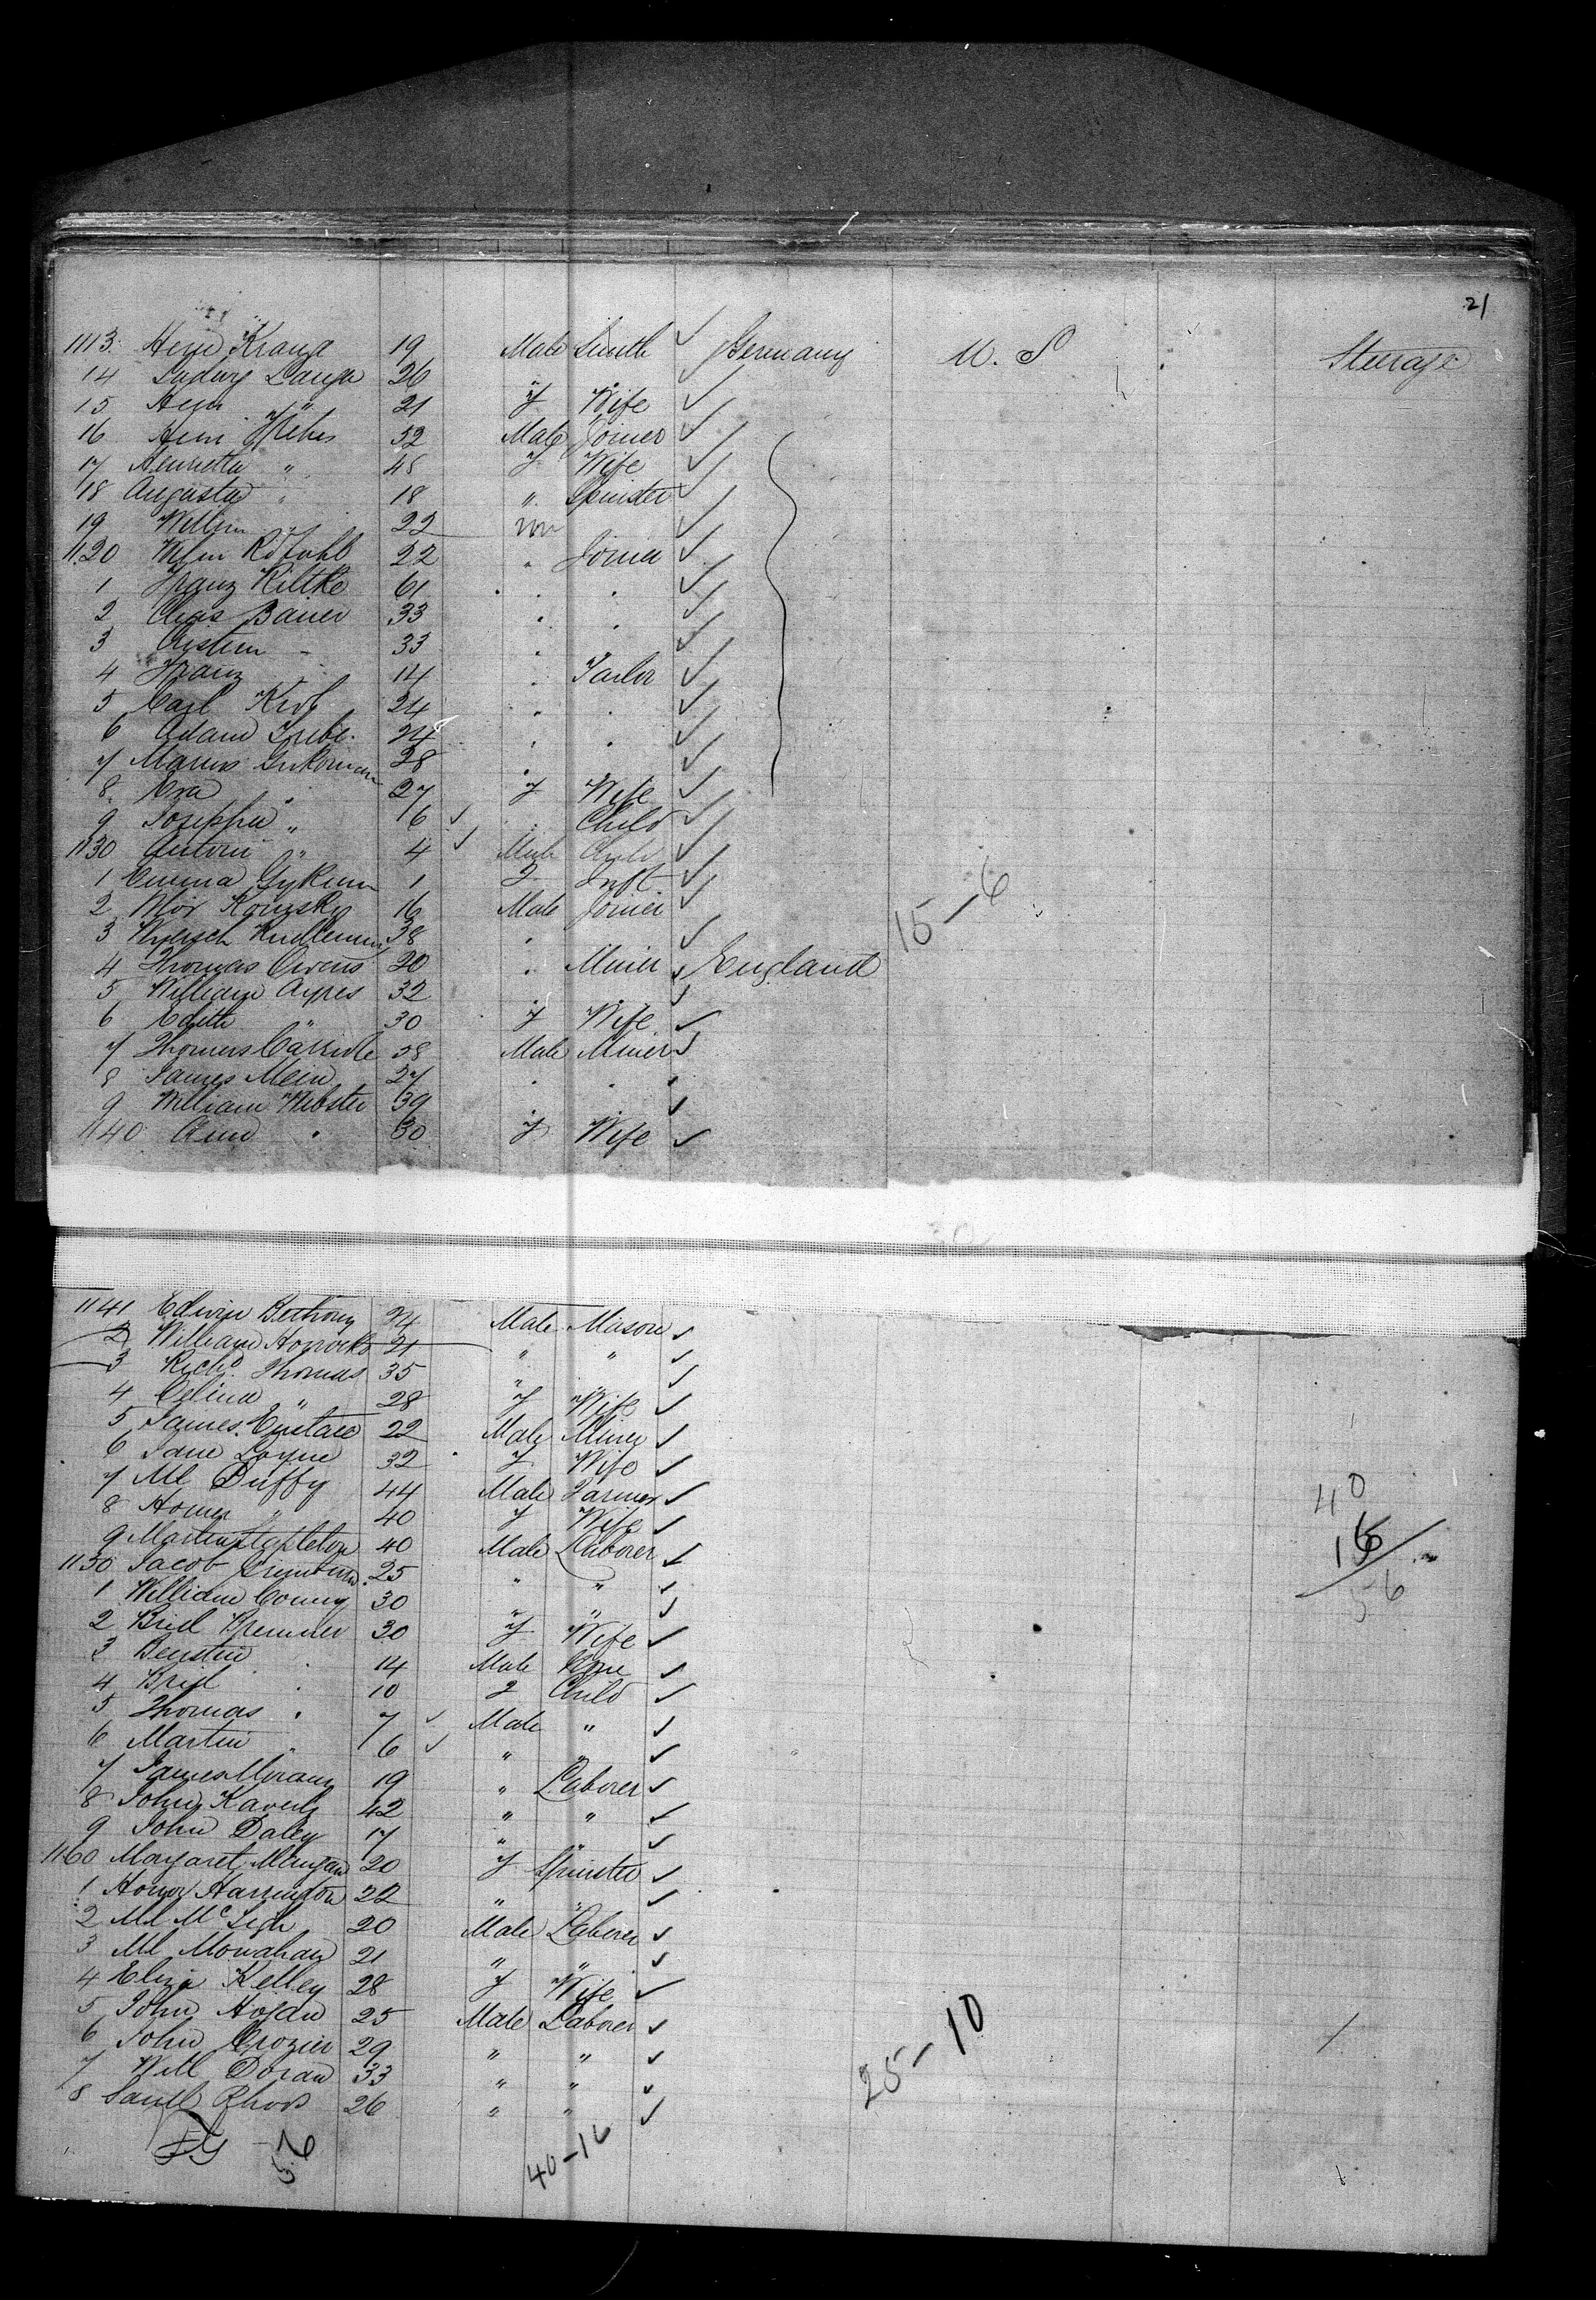 21
1113. Heye Kranz 19 Male Smith Germany U. S Steerage
14 Ludwig Lange 26
15 " 21 F Wife
16 52 Male Joiner
17 Henrietta " 48 F Wife
18 Augusta " 18 " Spinster
19 Willm 22
1120 Wilm 22 " Joiner
1 Franz Kiltke 61 " "
2 Chas Bauer 33 " "
3 33 "
4 Franz 14 " Tailor
5 Carl 24 " "
6 Adam 24 " "
7 28 "
8. Eva " 27 F Wife
9 Josephin " 6 " Child
1130 Antoni " 4 Male Child
1 Emma 1 F Inft
2 16 Male Joiner
3 38 "
15-6
4 Thomas Owens 20 " Miner England
5 William Ayres 32 " "
6 Edith " 30 F Wife
7 Thomas 38 Male Miner
8 James Mein 27 " "
9 William Webster 39 " "
1140 Ann " 30 F Wife
1141 Edwin Bethony 24 Male Mason
2 William Horrocks 21 " "
3 Richd. Thomas 35 " "
4 Celina " 28 F Wife
5 James Eustace 22 Male Miner
6 Jane Layne 32 F Wife
7 Ml Duffy 44 Male Farmer
40
8 Honer " 40 F Wife
9 Martin Stapleton 40 Male Laborer
16
1150 Jacob 25 " "
56
1 William 30 " "
2 Brid Bremner 30 F Wife
3 " 14 Male
4 Brid " 10 F Child
5 Thomas " 7 Male "
6 Martin " 6 " "
7 James Moran 19 " Laborer
8 John Kaverly 42 " "
9 John Daley 17 " "
1160 Margaret 20 F Spinster
1 Honor Harrington 22 " "
2 Ml McLigh 20 Male Laborer
3 Ml Monahan 21 " "
4 Eliza Kelley 28 F Wife
5 John Hogan 25 Male Laborer
25-10
6 John Crozier 29 " "
7 Will Doran 33 " "
8 Saml Rhods 26 " "
56
40-16